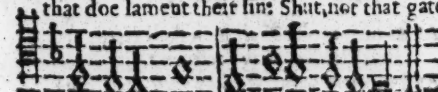 that doe lament their sin: Shut, not that gate